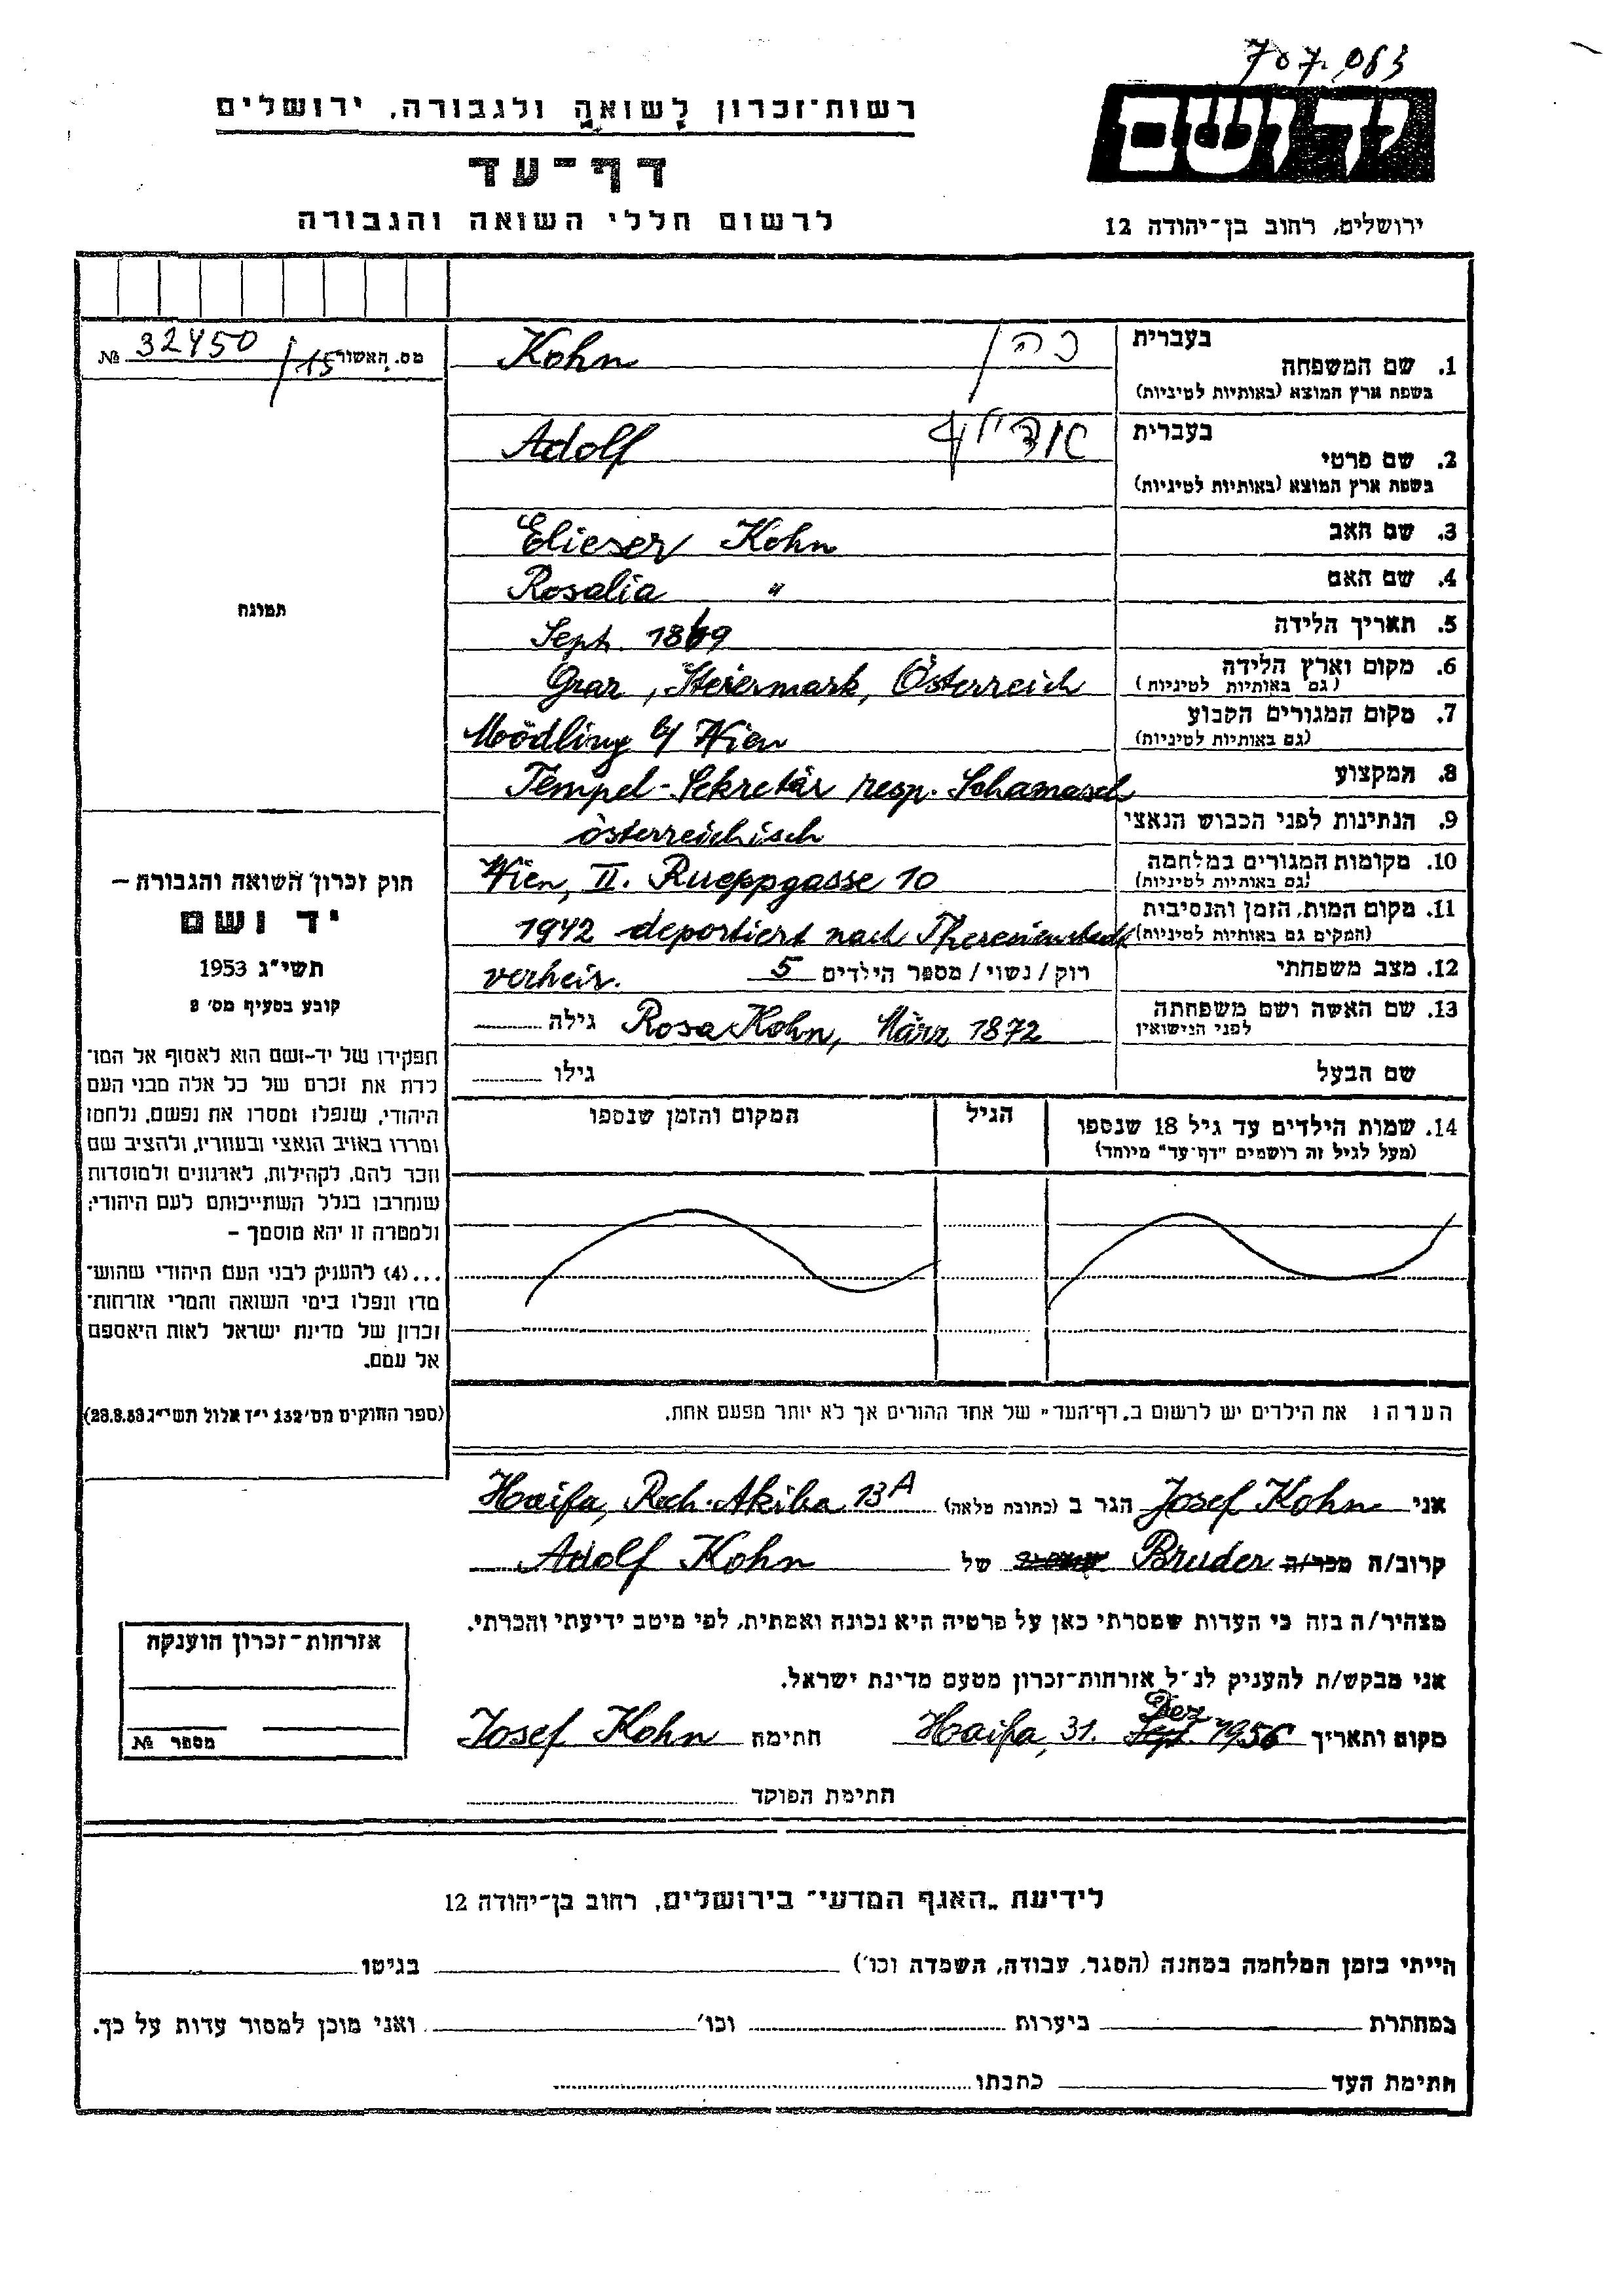 707.063
יד ושם
רשות־זכרון לשואה ולגבורה, ירושלים
דף־עד
לרשום חללי השואה והגבורה
ירושלים, רחוב בן־יהודה 12
מס. האשור 32450/15 №
תמונה
חוק זכרון השואה והגבורה –
יד ושם
תשי״ג 1953
קובע בסעיף מס׳ 2
תפקידו של יד-ושם הוא לאסוף אל המו־
לדת את זכרם של כל אלה מבני העם
היהודי, שנפלו ומסרו את נפשם, נלחמו
ומרדו באויב הנאצי ובעוזריו, ולהציב שם
וזכר להם, לקהילות, לארגונים ולמוסדות
שנחרבו בגלל השתייכותם לעם היהודי;
ולמטרה זו יהא מוסמך –
...(4) להעניק לבני העם היהודי שהוש־
מדו ונפלו בימי השואה והמרי אזרחות־
זכרון של מדינת ישראל לאות היאספם
אל עמם.
(ספר החוקים מס׳ 132 י״ז אלול תשי״ג 28.8.53)
בעברית כהן
1. שם המשפחה Kohn
בשפת ארץ המוצא (באותיות לטיניות)
בעברית אדולף
2. שם פרטי Adolf
בשפת ארץ המוצא (באותיות לטיניות)
3. שם האב Elieser Kohn
4. שם האם Rosalia "
5. תאריך הלידה Sept. 1869
6. מקום וארץ הלידה Graz, Steiermark, Österreich
(גם באותיות לטיניות)
7. מקום המגורים הקבוע Mödling b/ Wien
(גם באותיות לטיניות)
8. המקצוע Tempel-Sekretär resp. Schamasch
9. הנתינות לפני הכבוש הנאצי österreichisch
10. מקומות המגורים במלחמה Wien, II. Rueppgasse 10
(גם באותיות לטיניות)
11. מקום המות, הזמן והנסיבות 1942 deportiert nach Theresienstadt
(המקום גם באותיות לטיניות)
12. מצב משפחתי רוק / נשוי / מספר הילדים 5 verheir.
13. שם האשה ושם משפחתה Rosa Kohn, März 1872 גילה
לפני הנישואין
שם הבעל גילו
14. שמות הילדים עד גיל 18 שנספו הגיל המקום והזמן שנספו
(מעל לגיל זה רושמים "דף־עד" מיוחד)
הערה: את הילדים יש לרשום ב„דף־העד" של אחד ההורים אך לא יותר מפעם אחת.
אני Josef Kohn הגר ב (כתובת מלאה) Haifa, Rech. Akiba 13A
קרוב/ה מכר/ה Bruder של Adolf Kohn
מצהיר/ה בזה כי העדות שמסרתי כאן על פרטיה היא נכונה ואמתית, לפי מיטב ידיעתי והכרתי.
אני מבקש/ת להעניק לנ״ל אזרחות־זכרון מטעם מדינת ישראל.
מקום ותאריך Haifa, 31. Sept. Dez 1956 חתימה Josef Kohn
חתימת הפוקד
אזרחות־זכרון הוענקה
מספר №
לידיעת „האגף המדעי" בירושלים, רחוב בן־יהודה 12
הייתי בזמן המלחמה במחנה (הסגר, עבודה, השמדה וכו׳) בגיטו
במחתרת ביערות וכו׳ ואני מוכן למסור עדות על כך.
חתימת העד כתבתו